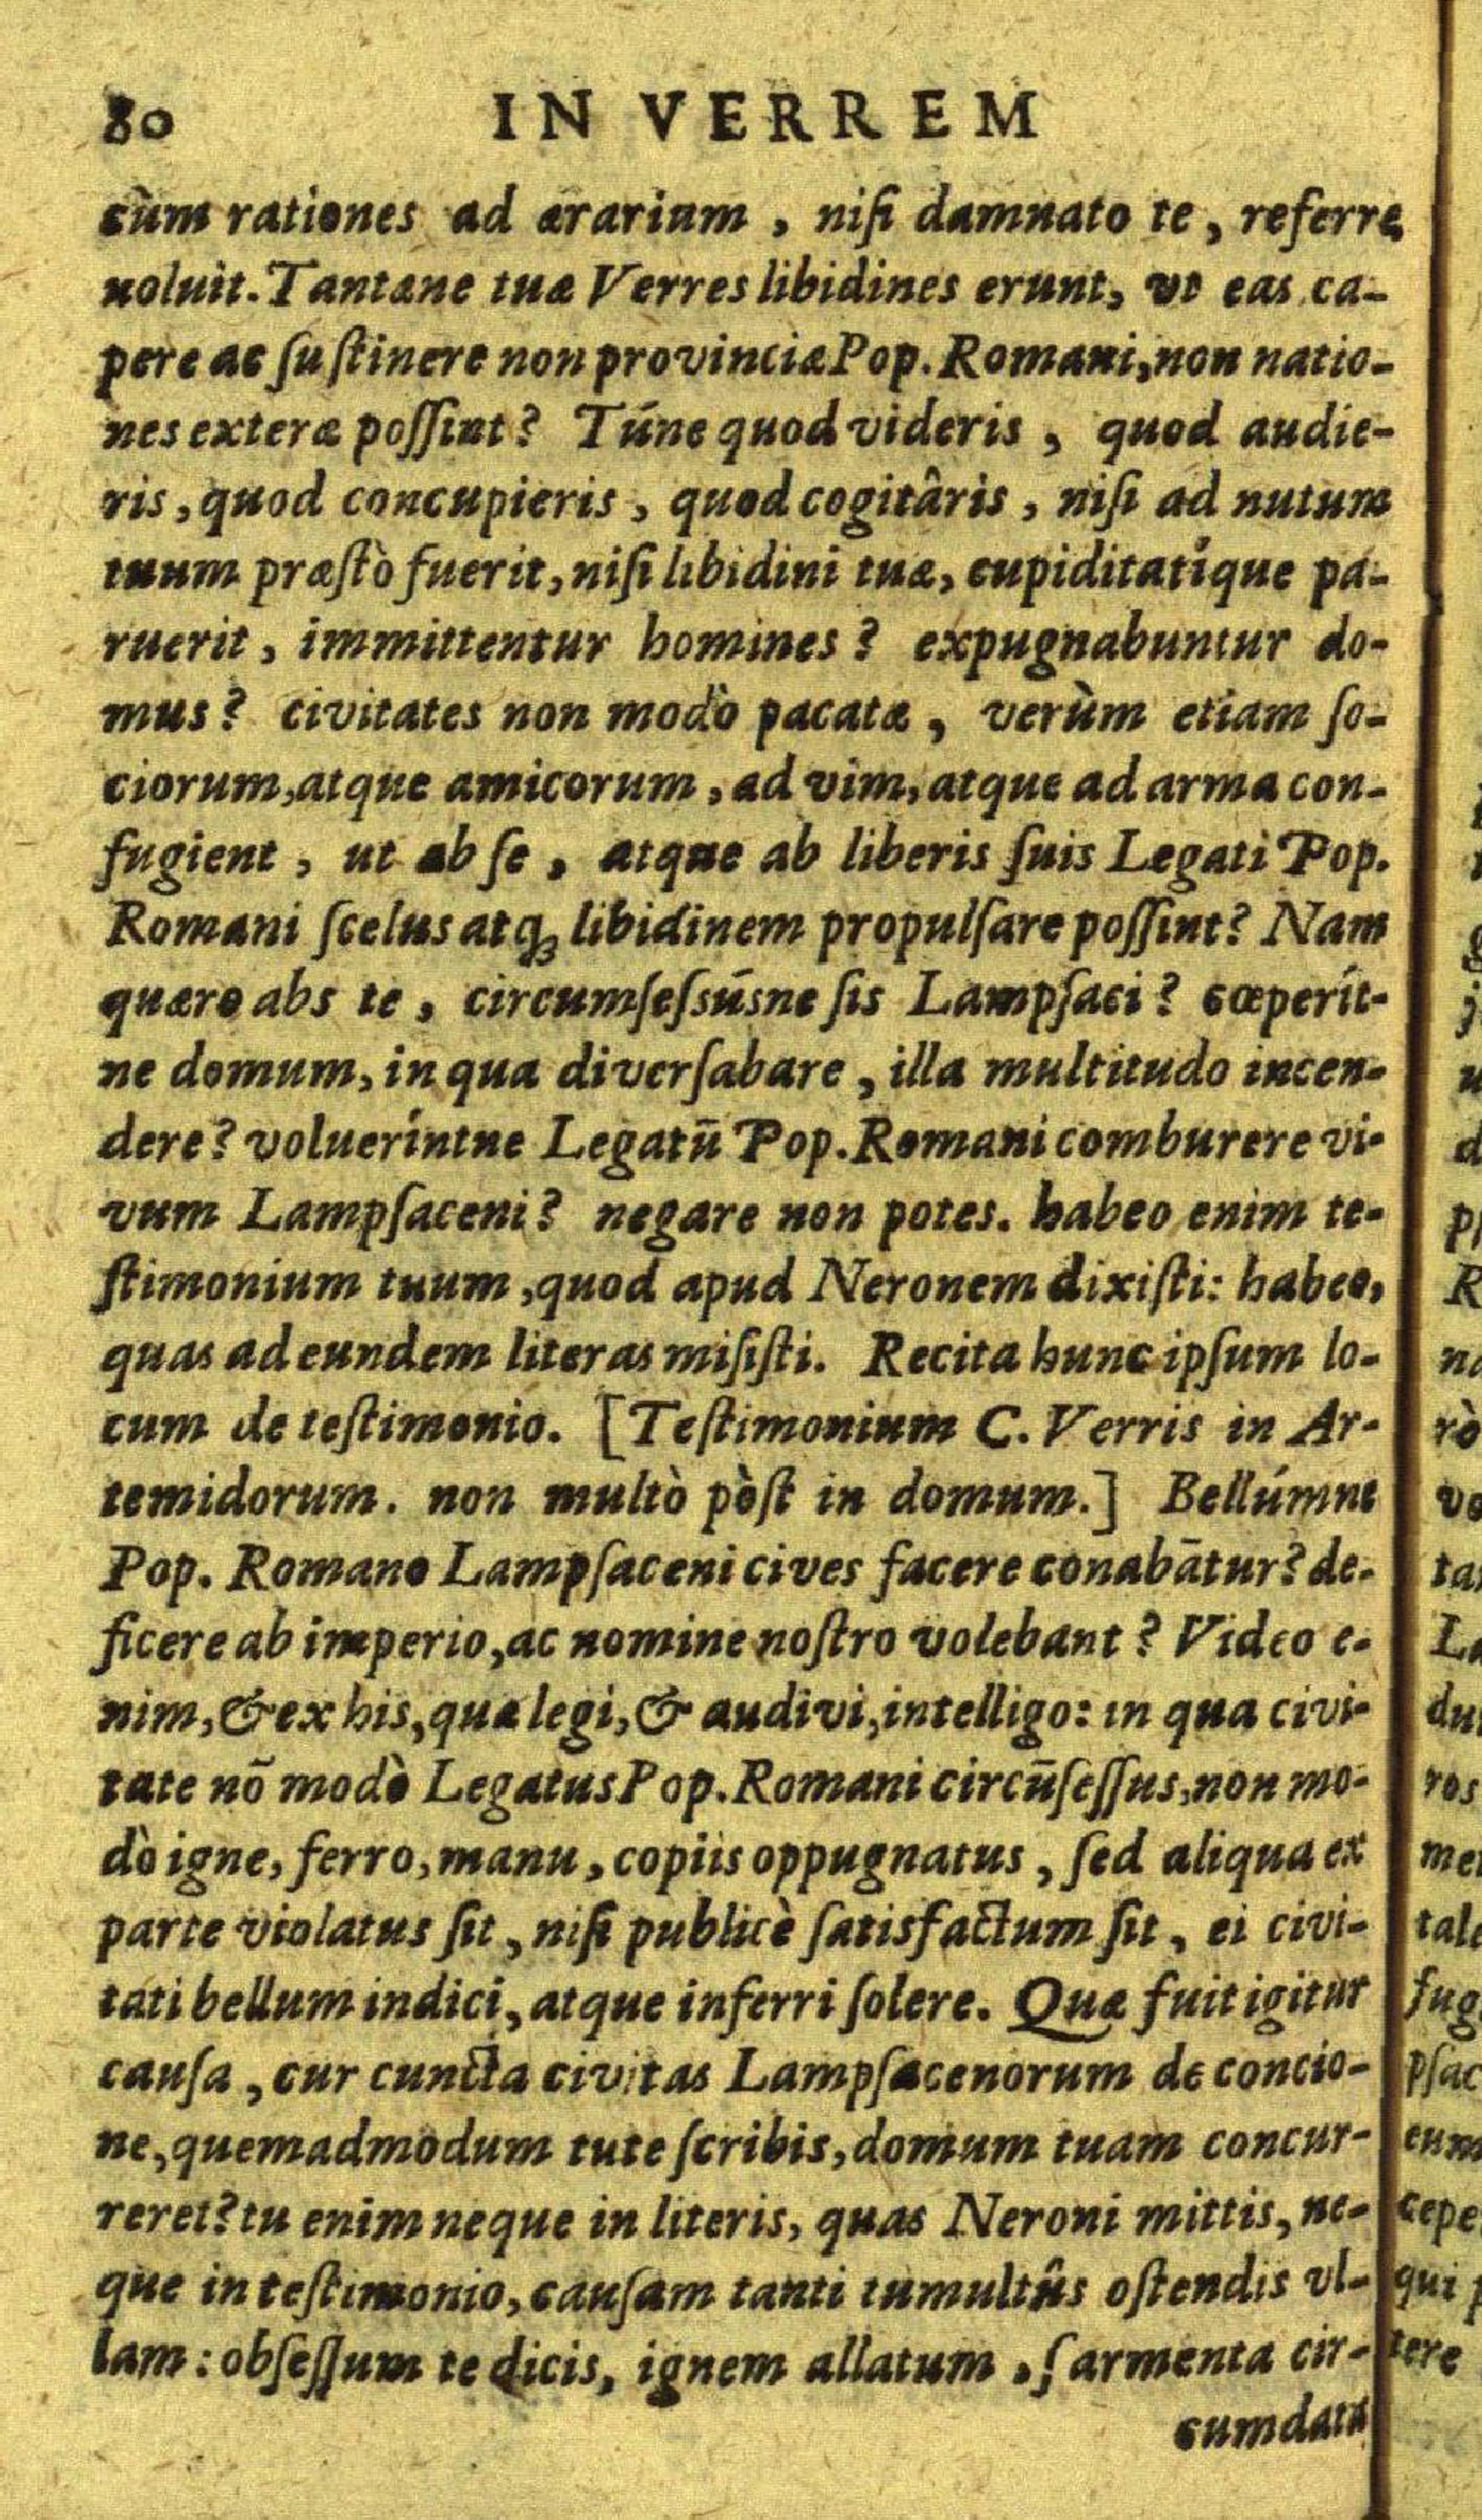 80 IN VERREM
cùm rationes ad ærarium, niſi damnato te, referre
noluit. Tantane tuæ Verres libidines erunt, vt eas ca-
pere ac ſuſtinere non provinciæ Pop. Romani, non natio-
nes exteræ poſſint? Túne quod videris, quod audie-
ris, quod concupieris, quod cogitâris, niſi ad nutum
tuum præſtò fuerit, niſi libidini tuæ, cupiditatíque pa-
ruerit, immittentur homines? expugnabuntur do-
mus? civitates non modò pacatæ, verùm etiam ſo-
ciorum, atque amicorum, ad vim, atque ad arma con-
fugient, ut ab ſe, atque ab liberis ſuis Legati Pop.
Romani ſcelus atq; libidinem propulſare poſſint? Nam
quæro abs te, circumſeſsúsne ſis Lampſaci? cœperít-
ne domum, in qua diverſabare, illa multitudo incen-
dere? volueríntne Legatū Pop. Romani comburere vi-
vum Lampſaceni? negare non potes. habeo enim te-
ſtimonium tuum, quod apud Neronem dixiſti: habeo,
quas ad eundem literas miſiſti. Recita hunc ipſum lo-
cum de teſtimonio. [Teſtimonium C. Verris in Ar-
temidorum. non multò pòſt in domum.] Bellúmne
Pop. Romano Lampſaceni cives facere conabātur? de-
ficere ab imperio, ac nomine noſtro volebant? Video e-
nim, & ex his, quæ legi, & audivi, intelligo: in qua civi-
tate nō modò Legatus Pop. Romani circūſeſſus, non mo-
dò igne, ferro, manu, copiis oppugnatus, ſed aliqua ex
parte violatus ſit, niſi publicè ſatisfactum ſit, ei civi-
tati bellum indici, atque inferri ſolere. Quæ fuit igitur
cauſa, cur cuncta civitas Lampſacenorum de concio-
ne, quemadmodum tute ſcribis, domum tuam concur-
reret? tu enim neque in literis, quas Neroni mittis, ne-
que in teſtimonio, cauſam tanti tumultûs oſtendis vl-
lam: obſeſſum te dicis, ignem allatum, ſarmenta cir-
cumdata